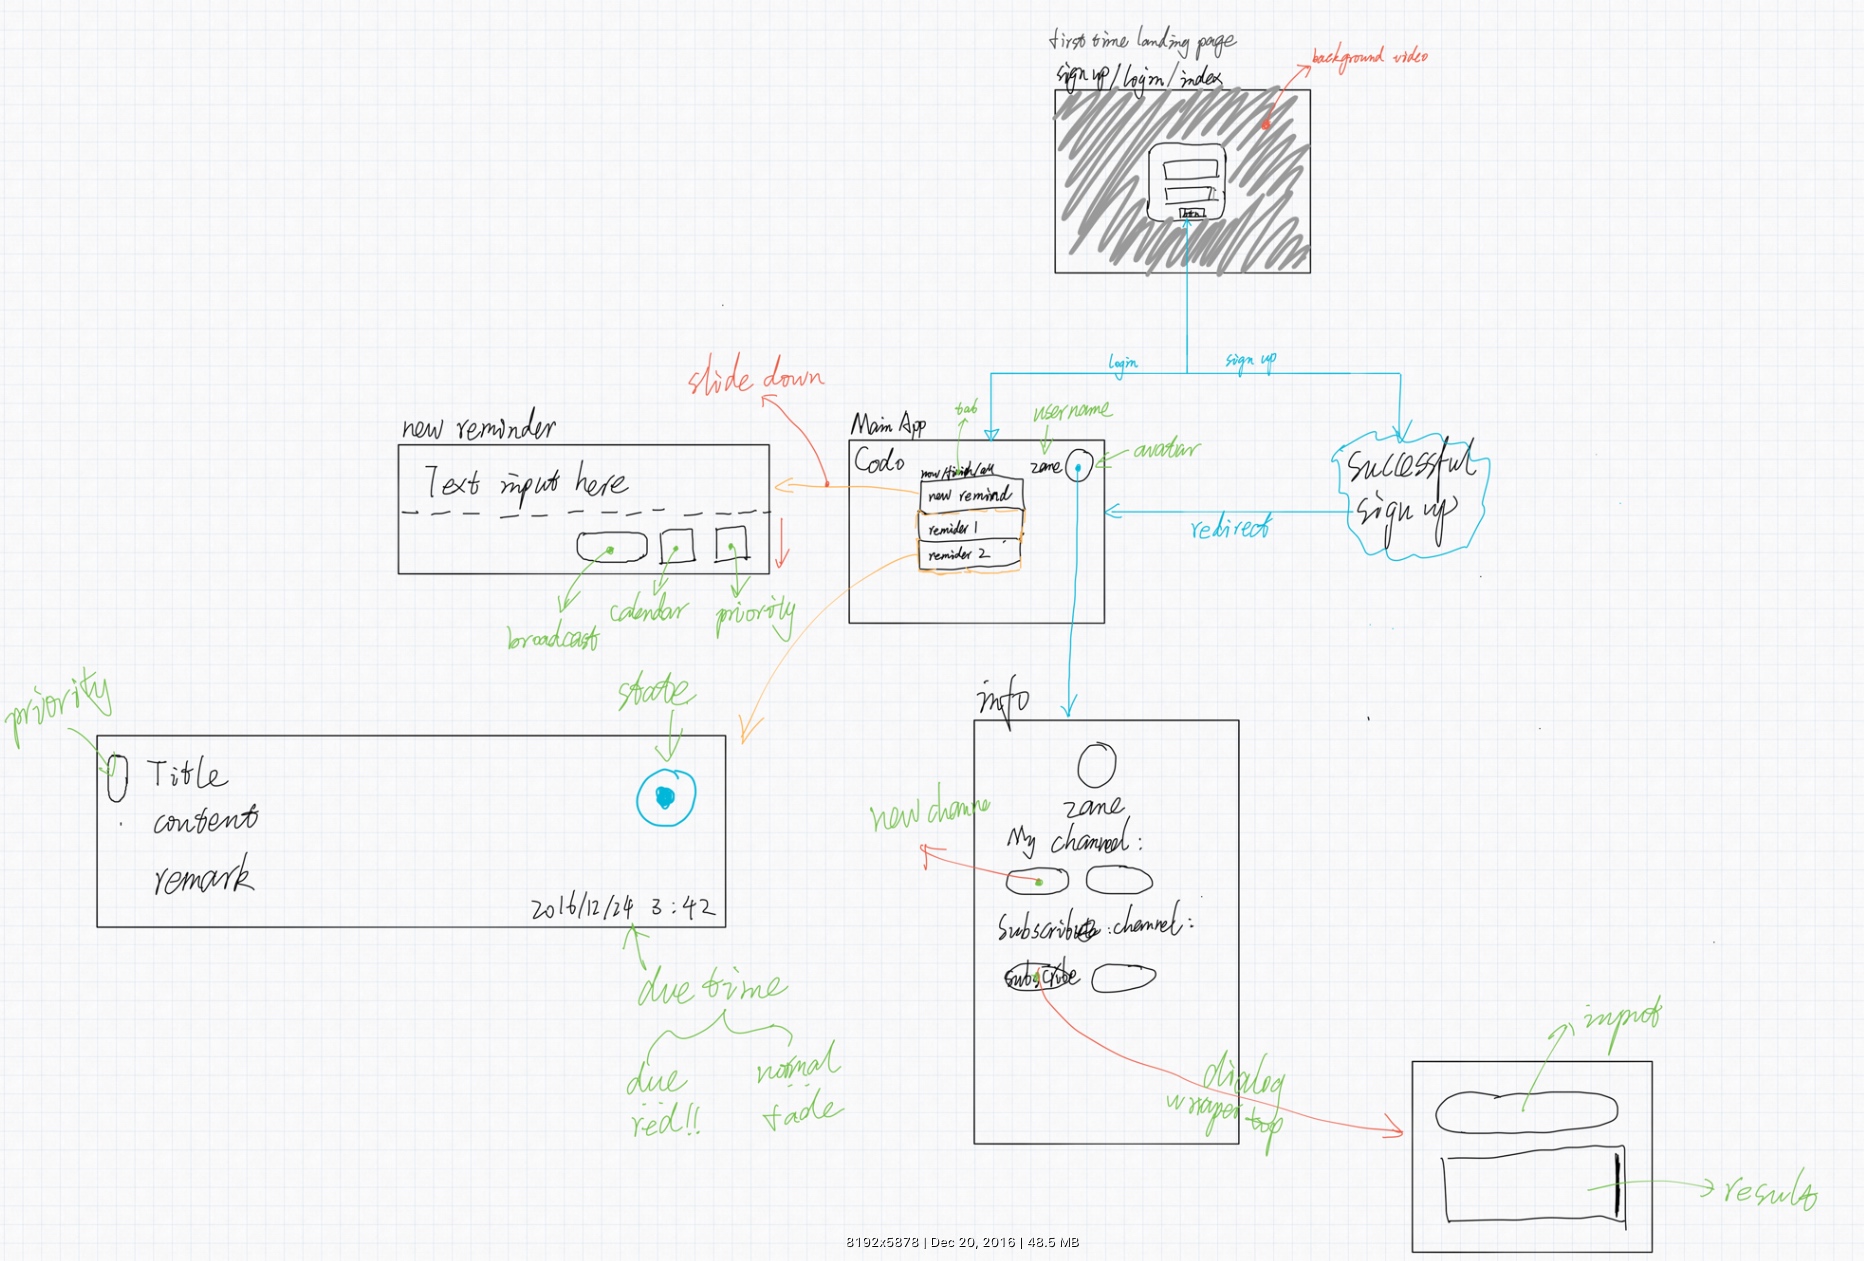 first time landing page
sign up/login/index
background video
btn
login
sign up
slide down
new reminder
Text input here
broadcast
calendar
priority
tab
username
avatar
Main App
Codo
now/finish/all
zane
new remind
remider 1
remider 2
redirect
successful
sign up
priority
state
Title
content
remark
2016/12/24 3:42
due time
due
red!!
normal
fade
info
zane
My channel:
new channe
Subscribe channel:
subscribe
dialog
wraper top
input
result
8192x5878 | Dec 20, 2016 | 48.5 MB